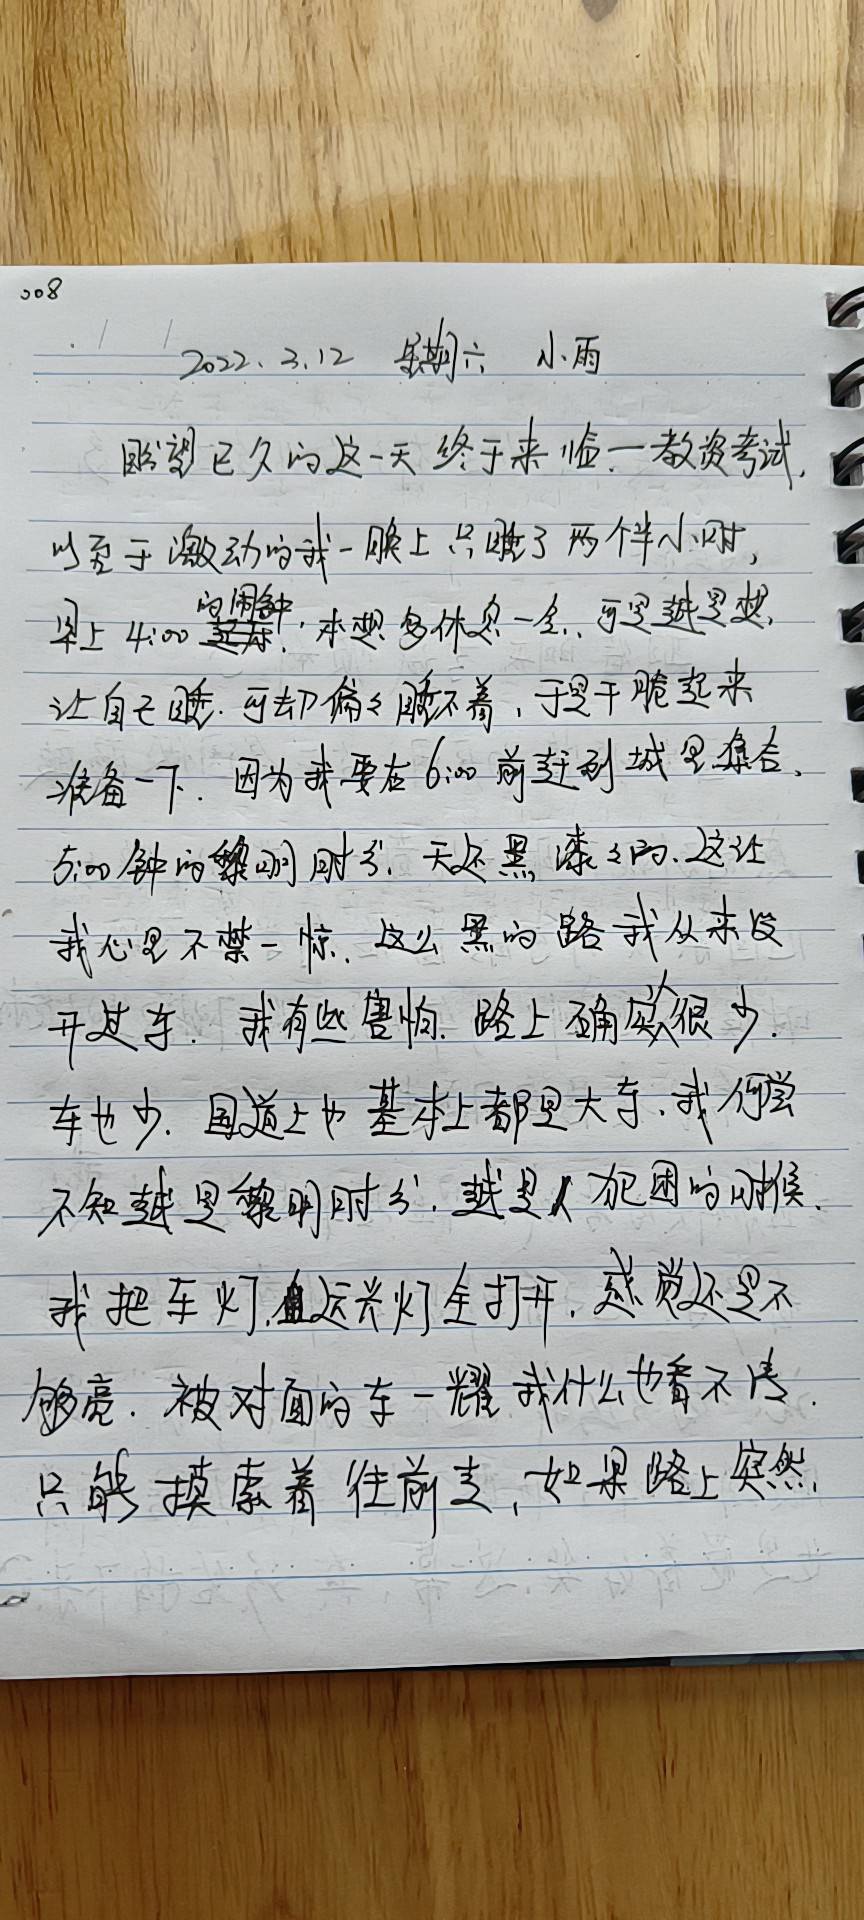 008
2022.3.12 星期六 小雨
盼望已久的这一天终于来临.一教资考试,
以至于激动的我一晚上只睡了两个半小时,
早上4:00的闹钟,本想多休息一会,可是越是想,
让自己睡.可却偏々睡不着,于是干脆起来
准备一下.因为我要在6:00前赶到城里集合.
5:00钟的黎明时分.天还黑漆々的.这让
我心里不禁一惊.这么黑的路我从来没
开过车.我有些害怕.路上确实人很少.
车也少.国道上也基本上都是大车.我何尝
不知越是黎明时分.越是人犯困的时候.
我把车灯.远光灯全打开.感觉还是不
够亮.被对面的车一耀我什么也看不清.
只能摸索着往前走,如果路上突然,